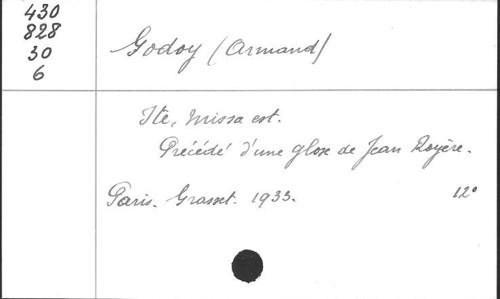 430
828
30
6
Godoy (Armand)
Ite, missa est.
Précédé d'une glose de Jean Royère.
Paris. Grasset. 1933. 12°